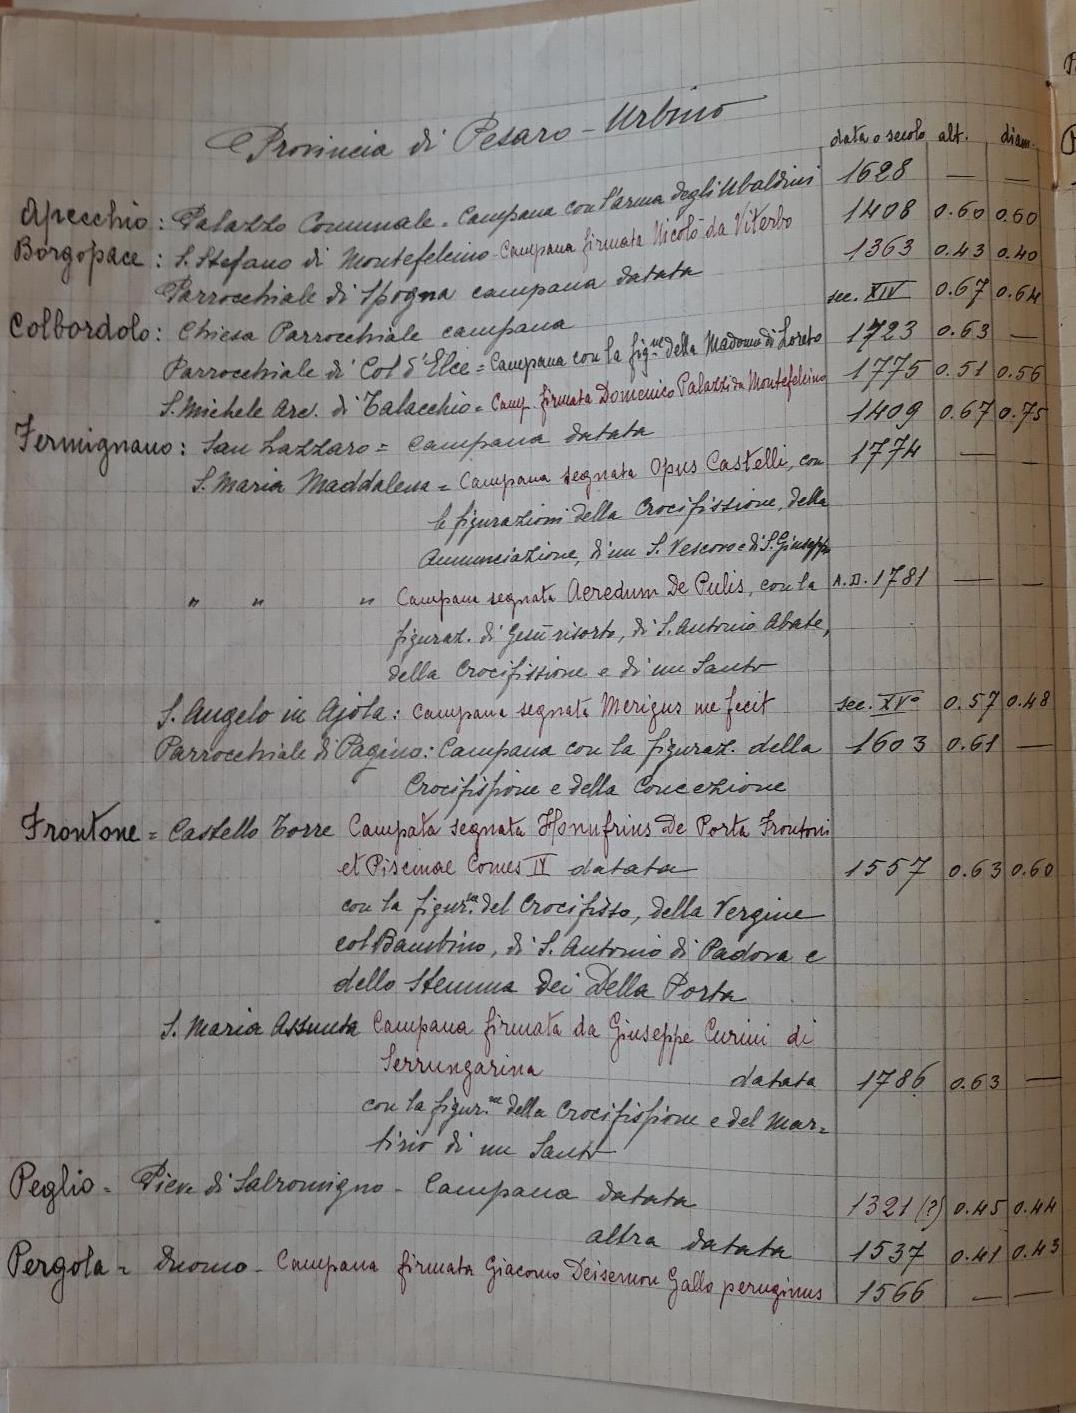 Provincia di Pesaro - Urbino
data o secolo alt. diam.
Apecchio: Palazzo Comunale - Campana con l'arma degli Ubaldini 1628 — —
Borgopace: S. Stefano di Montefelcino - Campana firmata Nicolò da Viterbo 1408 0.60 0.60
Parrocchiale di Spogna campana datata 1363 0.43 0.40
Colbordolo: Chiesa Parrocchiale campana sec. XIV 0.67 0.64
Parrocchiale di Col d'Elce = Campana con la fig.ne della Madonna di Loreto 1723 0.63 —
S. Michele Arc. di Talacchio = Camp. firmata Domenico Palazzi da Montefelcino 1775 0.51 0.56
Fermignano: San Lazzaro = Campana datata 1409 0.67 0.75
S. Maria Maddalena = Campana segnata Opus Castelli, con 1774 — —
le figurazioni della Crocifissione, della
Annunciazione, di un S. Vescovo e di S. Giuseppe
" " " Campana segnata Aeredum De Pulis, con la A.D. 1781 — —
figuraz. di Gesù risorto, di S. Antonio Abate,
della Crocifissione e di un Santo
S. Angelo in Ajola: Campana segnata Merigus me fecit sec. XV° 0.57 0.48
Parrocchiale di Pagino: Campana con la figuraz. della 1603 0.61 —
Crocifissione e della Concezione
Frontone = Castello Torre Campata segnata Honufrius De Porta Frontoni
et Piscinae Comes IV datata 1557 0.63 0.60
con la figur.ne del Crocifisso, della Vergine
col Bambino, di S. Antonio di Padova e
dello Stemma dei Della Porta
S. Maria Assunta Campana firmata da Giuseppe Curini di
Serrungarina datata 1786 0.63 —
con la figur.ne della Crocifissione e del mar=
tirio di un Santo
Peglio = Pieve di Salromigno - Campana datata 1321 (?) 0.45 0.44
altra datata 1537 0.41 0.43
Pergola = Duomo - Campana firmata Giacomo Gallo peruginus 1566 — —